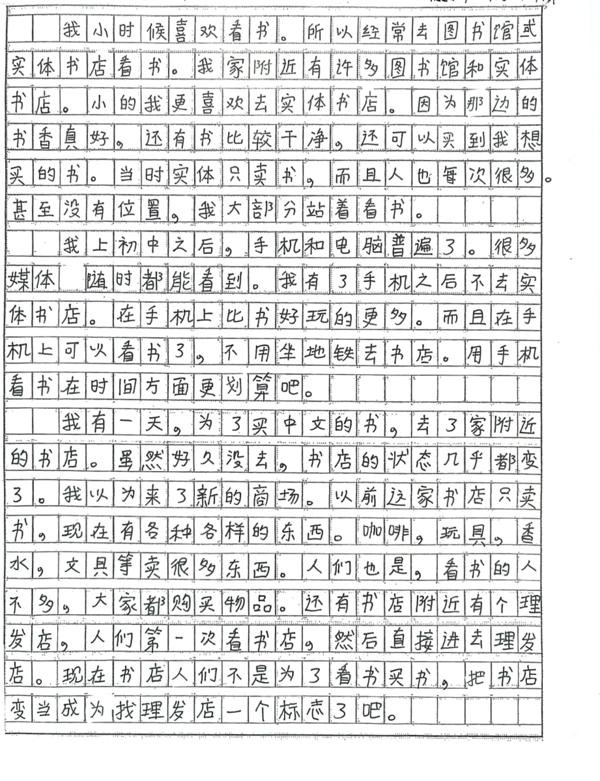 我小时候喜欢看书。所以经常去图书馆或
实体书店看书。我家附近有许多图书馆和实体
书店。小的我更喜欢去实体书店。因为那边的
书香真好，还有书比较干净，还可以买到我想
买的书。当时实体只卖书，而且人也每次很多。
甚至没有位置，我大部分站着看书。
我上初中之后，手机和电脑普遍了。很多
媒体 随时都能看到。我有了手机之后不去实
体书店。在手机上比书好玩的更多。而且在手
机上可以看书了，不用坐地铁去书店。用手机
看书在时间方面更划算吧。
我有一天，为了买中文的书，去了家附近
的书店。虽然好久没去，书店的状态几乎都变
了。我以为来了新的商场。以前这家书店只卖
书，现在有各种各样的东西。咖啡，玩具，香
水，文具等卖很多东西。人们也是，看书的人
不多，大家都购买物品。还有书店附近有个理
发店，人们第一次看书店，然后直接进去理发
店。现在书店人们不是为了看书买书，把书店
变当成为找理发店一个标志了吧。